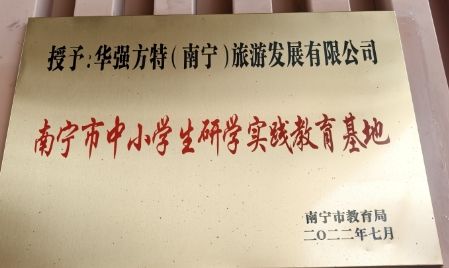 授予:华强方特(南宁)旅游发展有限公司
南宁市中小学生研学实践教育基地
南宁市教育局
二〇二二年七月